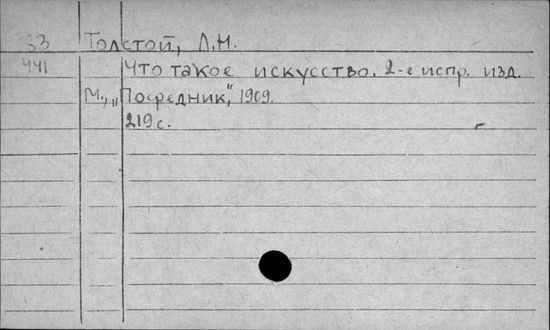 33 Толстой, Л.Н.
441 Что такое искусство. 2-е испр. изд.
М., „Посредник", 1909.
219 с.